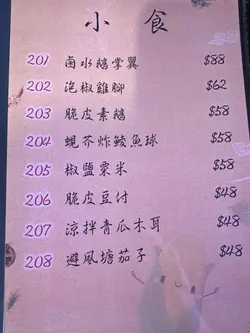 小食
201 鹵水鵝掌翼 $88
202 泡椒雞腳 $62
203 脆皮素鵝 $58
204 蜆芥炸鯪魚球 $58
205 椒鹽粟米 $58
206 脆皮豆付 $48
207 涼拌青瓜木耳 $48
208 避風塘茄子 $48